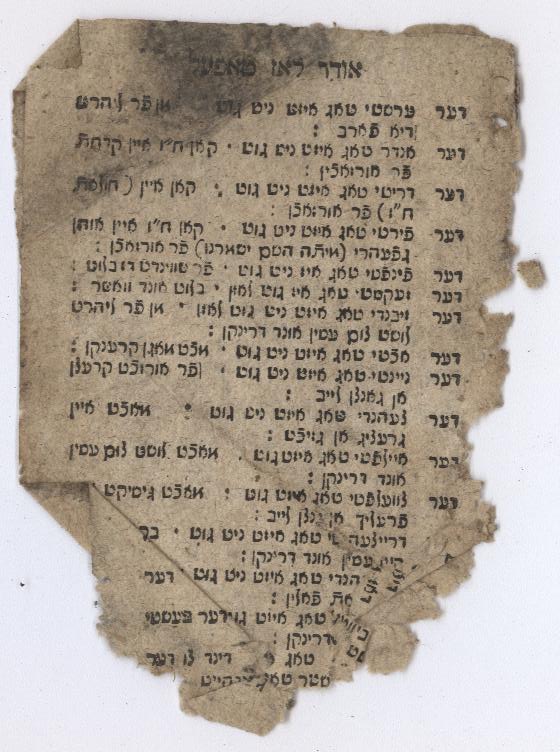 אודר לאז טאפעל
דער ערשטי טאג איזט ניט גוט · מן פר ליהרט
דיא פארב :
דער אנדר טאג איזט ניט גוט · קאן ח״ו איין קדחת
פר אורזאכין :
דער דריטי טאג איזט ניט גוט · קאן איין (חולאת
ח״ו) פר אורזאכן :
דער פירטי טאג איזט ניט גוט · קאן ח״ו איין אוהן
גפעהרי (מיתה השם ישמרנו) פר אורזאכן :
דער פינפטי טאג איז ניט גוט · פר שווינדט דז בלוט :
דער זעקסטי טאג איז גוט לאזן · בלוט אונד וואשר :
דער זיבנדי טאג איזט ניט גוט לאזן · מן פר ליהרט
לוסט צום עסין אונד דרינקן :
דער אכטי טאג איזט ניט גוט · מכט מאגן קרענקן :
דער ניינטי טאג איזט ניט גוט · פר אורזכט קרעצן
אן גאנצן לייב :
דער צעהנדי טאג איזט ניט גוט · מאכט איין
גרעציג אן גזיכט :
דער איילפטי טאג איזט גוט · מאכט לוסט צום עסין
אונד דרינקן :
דער צוועלפטי טאג איזט גוט · מאכט גשטערקט
פרעליך אן גנצן לייב :
דרייצעה טי טאג איזט ניט גוט ·
עסין אונד דרינקן :
הנדי טאג איזט ניט גוט · דער
פאלין :
טאג איזט גוט דער בעסטי
דרינקן :
טאג · דינד צו דער
טאג